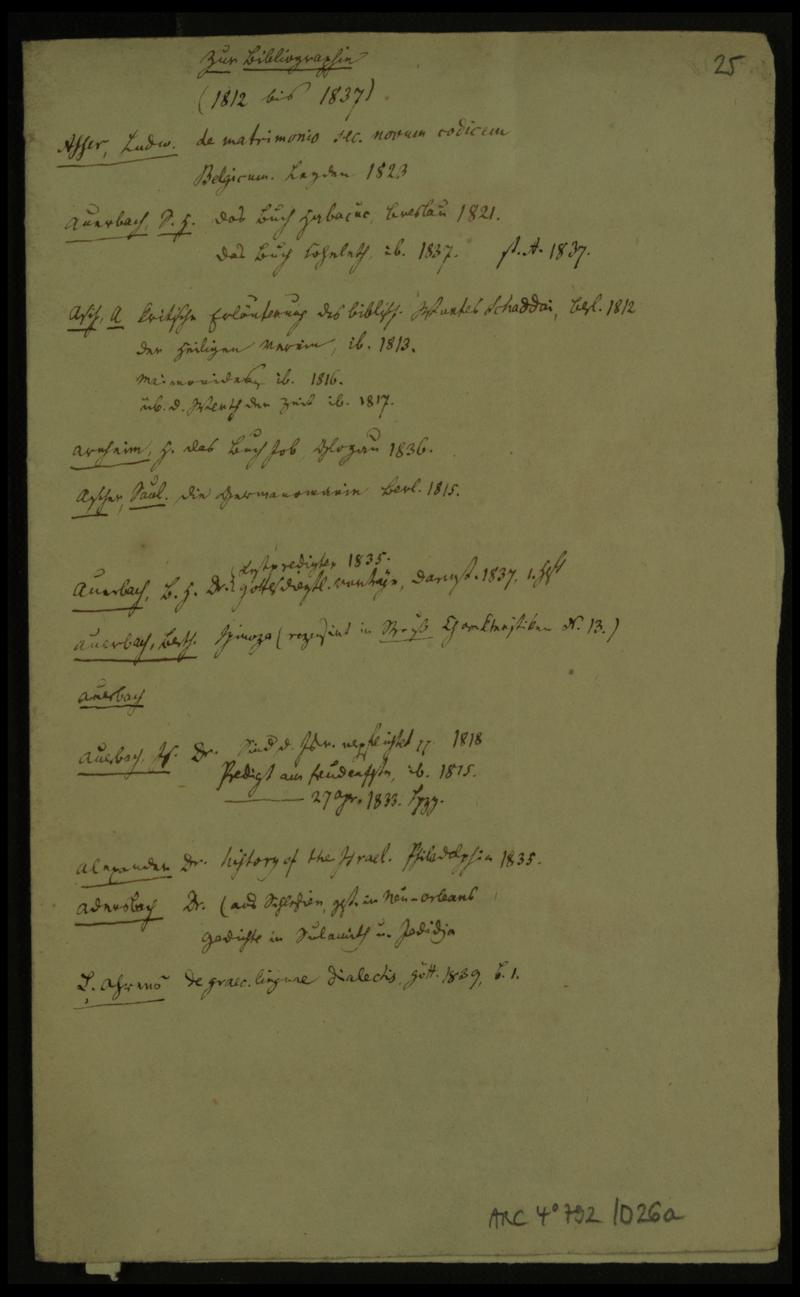 25
Zur Bibliographie
(1812 bis 1837)
Asser, Ludw. de matrimonio sec. novum codicem
Belgicum. Leyden 1823
Auerbach, S. H. das Buch Habacuc, Breslau 1821.
das Buch Koheleth, ib. 1837. st. A. 1837.
Asch, A kritische Erläuterung des biblisch. Wortes Schaddai, Berl. 1812
der heiligen Verein, ib. 1813.
Maimonides ib. 1816.
üb. d. Werth der Zeit ib. 1817.
Arnheim, H. das Buch Job, Glogau 1836.
Ascher, Saul. die Germanomanie Berl. 1815.
Festpredigten 1835.
Auerbach, B. H. Dr. gottesdienstl. Vorträge, Darmst. 1837. 1. Heft
Auerbach, Berth. Spinoza (rezensirt in Charakteristiken N. 13.)
Auerbach
Auerbach, Is. Dr. Sind d. Isr. verpflichtet 1818
Predigt am Freudenfeste, ib. 1815.
27 Apr. 1833. Lpzg.
Alexander Dr. history of the Israel. Philadelphia 1835.
Adersbach Dr. (aus Schlesien, gst. in Neu-Orleans
Gedichte in Sulamith u. Jedidja
L. Ahrens de graec. linguae dialectis, Gött. 1839, B. 1.
ARC 4° 792 /D26a